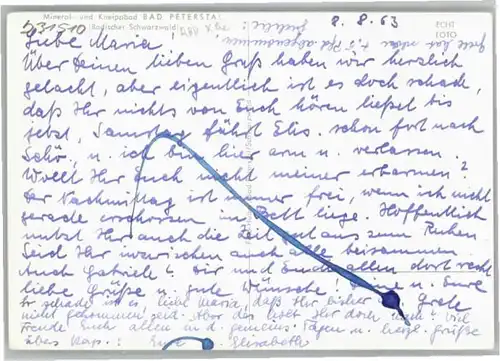 Mineral- und Kneippbad BAD PETERSTAL
(Badischer Schwarzwald)
ECHT
FOTO
8. 8. 63
Liebe Maria!
Über Deinen lieben Gruß haben wir herzlich
gelacht, aber eigentlich ist es doch schade,
daß Ihr nichts von Euch hören ließet bis
jetzt, Samstag fährt Elis. schon fort nach
Schö., u. ich bin hier arm u. verlassen.
Wollt Ihr Euch nicht meiner erbarmen?
Der Nachmittag ist immer frei, wenn ich nicht
gerade erschossen im Bett liege. Hoffentlich
nutzt Ihr auch die Zeit gut aus zum Ruhen
Seid Ihr inzwischen auch alle beisammen,
auch Gabriele? Dir und Euch allen dort recht
liebe Grüße u. gute Wünsche! Eure
gerade ist es, liebe Maria, daß Ihr bisher
nicht gekommen seid. Aber das holt Ihr doch nach! Viel
Freude Euch allen in d. gemeins. Tagen u. herzl. Grüße
Eure Elisabeth